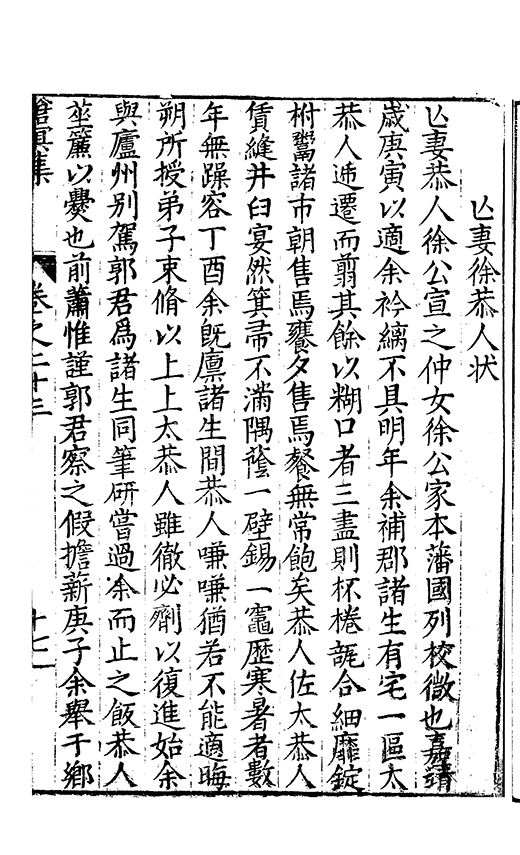 亾妻徐恭人状
亾妻恭人徐公宣之仲女徐公家本藩國列校微也嘉靖
歲庚寅以適余衿縭不具明年余補郡諸生有宅一區太
恭人遞遷而翦其餘以糊口者三盡則杯棬瓻合細靡錠
柎鬻諸市朝售焉饔夕售焉餐無常飽矣恭人佐太恭人
賃縫井臼宴然箕帚不滿隅蔭一壁錫一竈歷寒暑者數
年無躁容丁酉余旣廪諸生間恭人嗛嗛猶若不能適晦
朔所授弟子束脩以上上太恭人雖徹必劑以復進始余
與廬州別駕郭君爲諸生同筆研嘗過余而止之飯恭人
莝簾以爨也前蕭惟謹郭君察之假擔薪庚子余舉于鄉
滄溟集
卷之二十三
十七